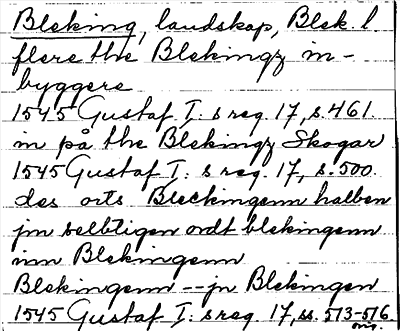 Bleking, landskap, Blek. l.
flere the Blekingz in-
byggere
1545 Gustaf I:s reg. 17, s. 461
in på the Blekingz Skogar
1545 Gustaf I:s reg. 17, s. 500.
des orts Bleckingenn halben
jm selbtigen ordt blekingenn
inn Blekingenn
Blekingenn -- jn Blekingen
1545 Gustaf I:s reg. 17, ss. 513-516
orig.